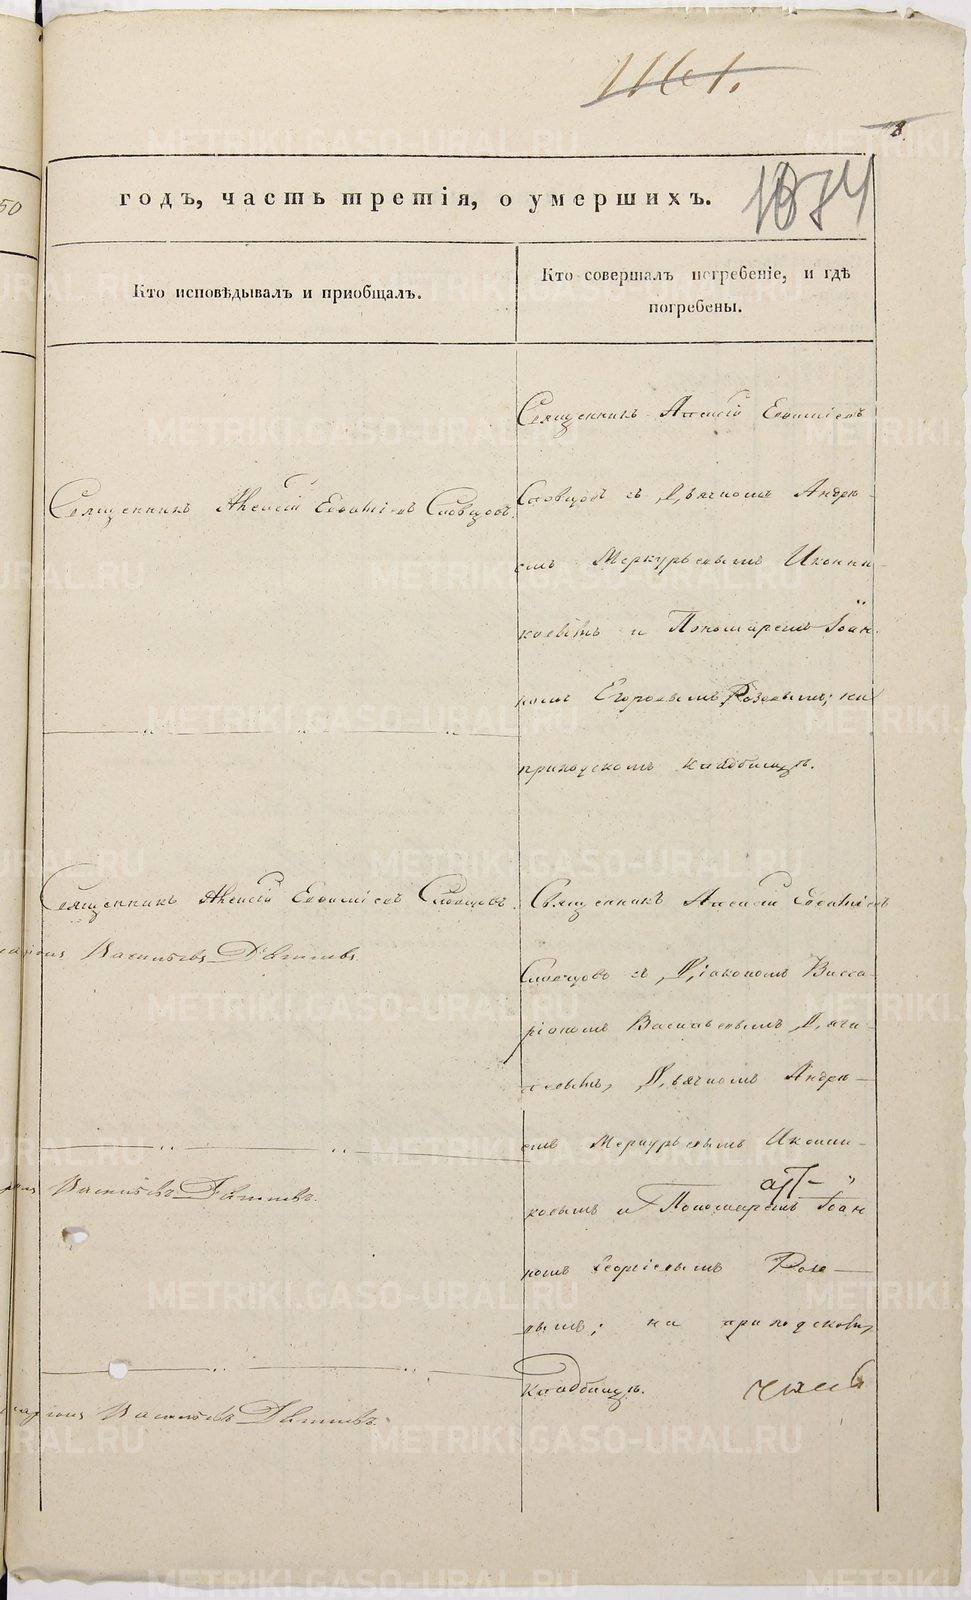 8
годъ, часть третія, о умершихъ.
1074
50
Кто исповѣдывалъ и пріобщалъ.
Кто совершалъ погребеніе, и гдѣ
погребены.
Священникъ Алексій Евфиміевъ Словцовъ.
Священникъ Алексій Евфиміевъ
Словцовъ съ Дьячкомъ Андре-
емъ Меркурьевымъ Икон
ковымъ и Пономаремъ Іоан
номъ Егоровымъ на
приходскомъ кладбищѣ.
Священникъ Алексій Евфиміевъ Словцовъ.
Васильевъ
Священникъ Алексій Евфиміевъ
Словцовъ съ Діакономъ Висса-
ріономъ Васильевымъ
Дьячкомъ Андре-
емъ Меркурьевымъ Икон
ковымъ и Пономаремъ Іоан
номъ Георгіевымъ
вымъ; на приходскомъ
кладбищѣ.
Васильевъ
Васильевъ
METRIKI.GASO-URAL.RU